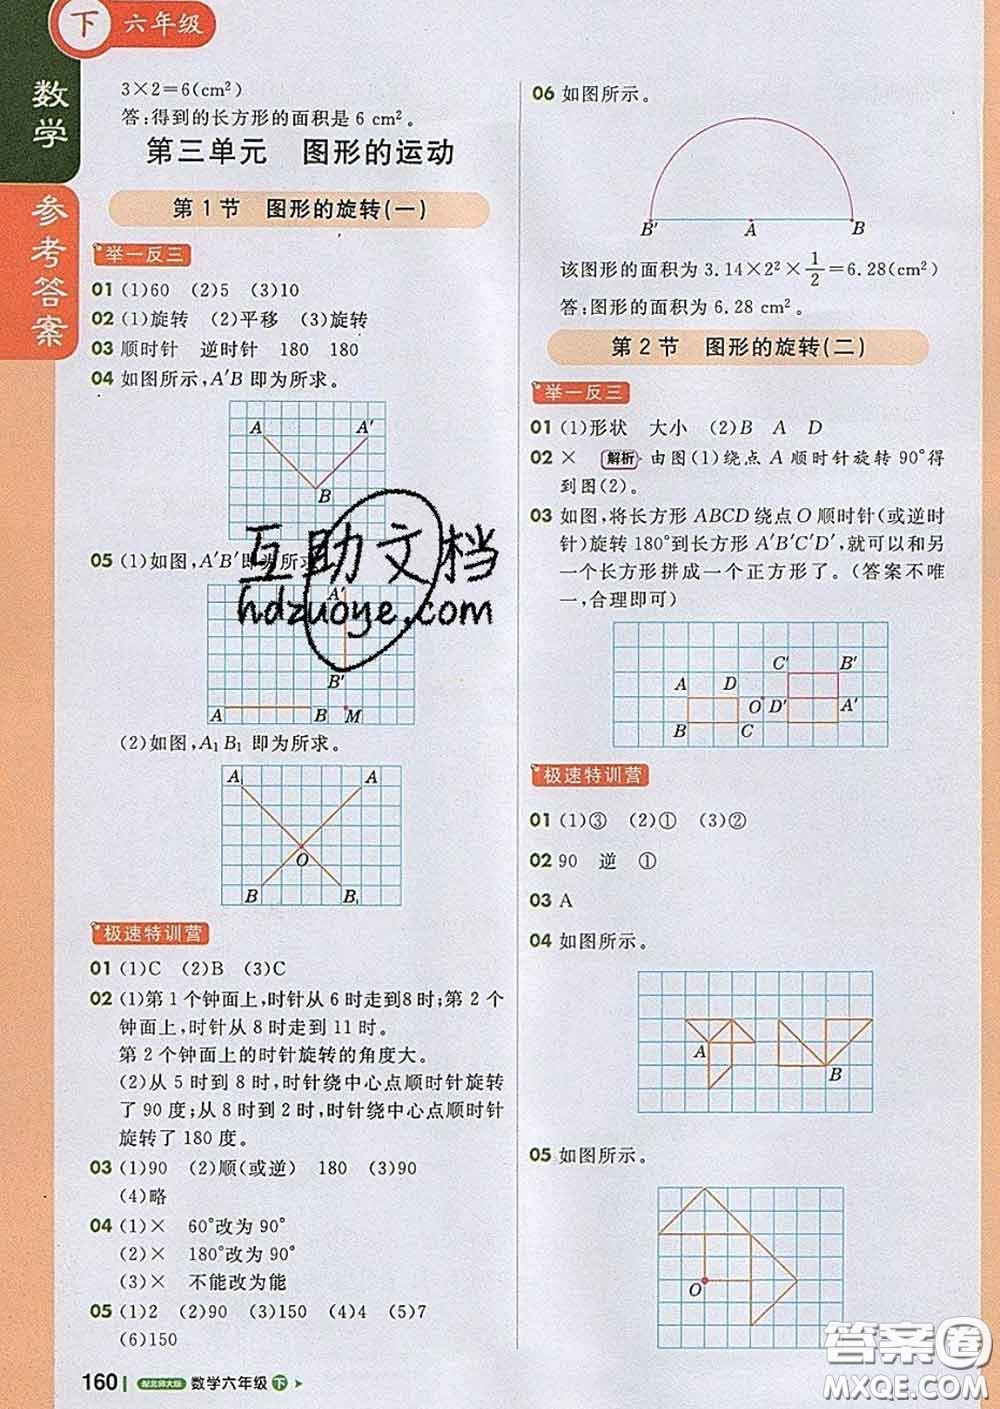 下 六年级
数学
参考答案
3×2=6(cm²)
答:得到的长方形的面积是 6 cm²。
第三单元 图形的运动
第 1 节 图形的旋转(一)
举一反三
01 (1)60 (2)5 (3)10
02 (1)旋转 (2)平移 (3)旋转
03 顺时针 逆时针 180 180
04 如图所示,A′B 即为所求。
A A′
B
05 (1)如图,A′B′即为所求
A′
B′
A B M
(2)如图,A₁B₁ 即为所求。
A A
O
B B₁
极速特训营
01 (1)C (2)B (3)C
02 (1)第 1 个钟面上,时针从 6 时走到8时;第 2 个
钟面上,时针从 8 时走到 11 时。
第 2 个钟面上的时针旋转的角度大。
(2)从 5 时到 8 时,时针绕中心点顺时针旋转
了 90 度;从 8 时到 2 时,时针绕中心点顺时针
旋转了 180 度。
03 (1)90 (2)顺(或逆) 180 (3)90
(4)略
04 (1)× 60°改为 90°
(2)× 180°改为 90°
(3)× 不能改为能
05 (1)2 (2)90 (3)150 (4)4 (5)7
(6)150
160 配北师大版 数学六年级 下
06 如图所示。
B′ A B
该图形的面积为 3.14×2²×1/2=6.28(cm²)
答:图形的面积为 6.28 cm²。
第 2 节 图形的旋转(二)
举一反三
01 (1)形状 大小 (2)B A D
02 × 解析 由图(1)绕点 A 顺时针旋转 90°得
到图(2)。
03 如图,将长方形 ABCD 绕点 O 顺时针(或逆时
针)旋转 180°到长方形 A′B′C′D′,就可以和另
一个长方形拼成一个正方形了。(答案不唯
一,合理即可)
C′ B′
A D
O D′ A′
B C
极速特训营
01 (1)③ (2)① (3)②
02 90 逆 ①
03 A
04 如图所示。
A B
05 如图所示。
O
互助文档
hdzuoye.com
答案圈
MXQE.COM